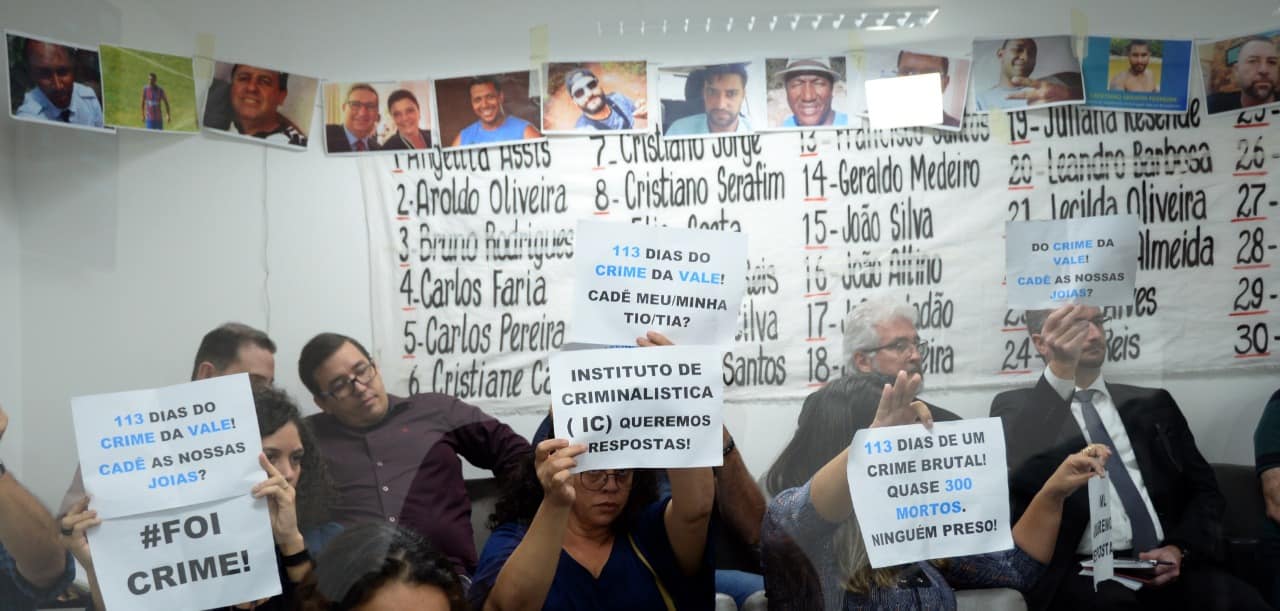 1-Angelita Assis
2-Aroldo Oliveira
3-Bruno Rodrigues
4-Carlos Faria
5-Carlos Pereira
6-Cristiane
7-Cristiano Jorge
8-Cristiano Serafim
Costa
Santos
13-Francisco Santos
14-Geraldo Medeiro
15-João Silva
16-João
17-
18-
19-Juliana Resende
20-Leandro Barbosa
21 Lecilda Oliveira
Almeida
24-
Reis
26-
27-
28-
29-
30-
113 DIAS DO
CRIME DA VALE!
CADÊ AS NOSSAS
JOIAS?
#FOI
CRIME!
113 DIAS DO
CRIME DA VALE!
CADÊ MEU/MINHA
TIO/TIA?
INSTITUTO DE
CRIMINALISTICA
( IC) QUEREMOS
RESPOSTAS!
113 DIAS DE UM
CRIME BRUTAL!
QUASE 300
MORTOS.
NINGUÉM PRESO!
DO CRIME DA
VALE!
CADÊ AS NOSSAS
JOIAS?